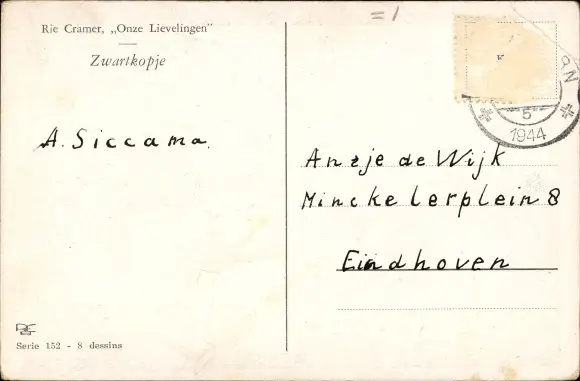 Rie Cramer, „Onze Lievelingen"
Zwartkopje
=1
K
5
1944
A. Siccama
Anzje de Wijk
Minckelerplein 8
Eindhoven
Serie 152 - 8 dessins